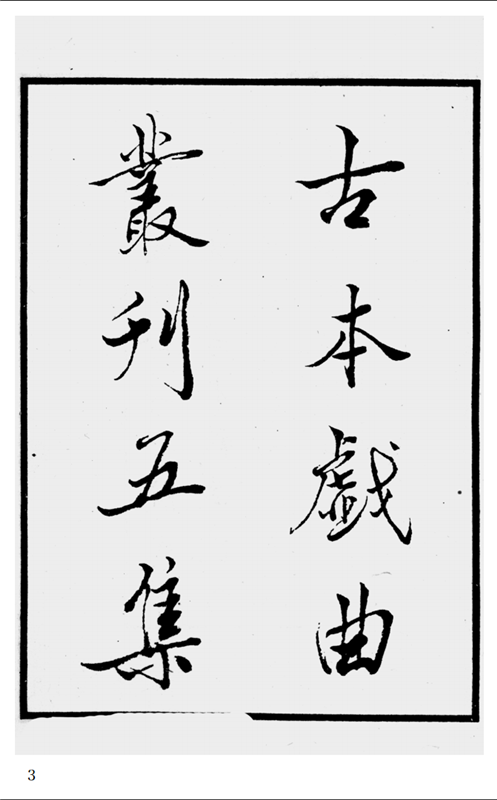 古本戲曲
叢刊五集
3